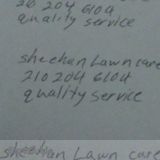 210 204 6104
quality service
sheehan Lawn care
210 204 6104
quality service
sheehan Lawn care